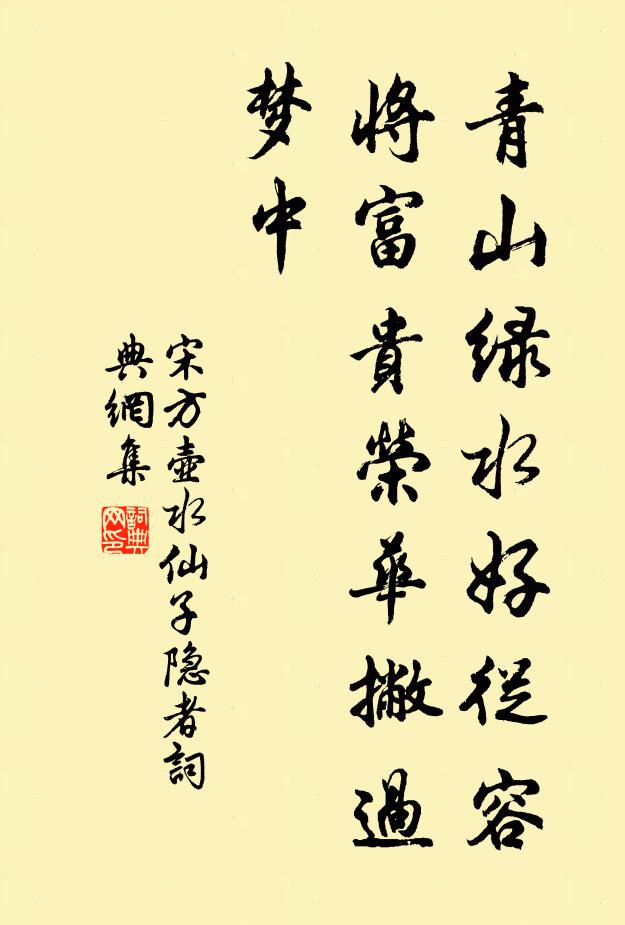 青山绿水好從容
將富貴榮華撇過
梦中
宋方壶水仙子隐者詞
典網集
詞典
网印